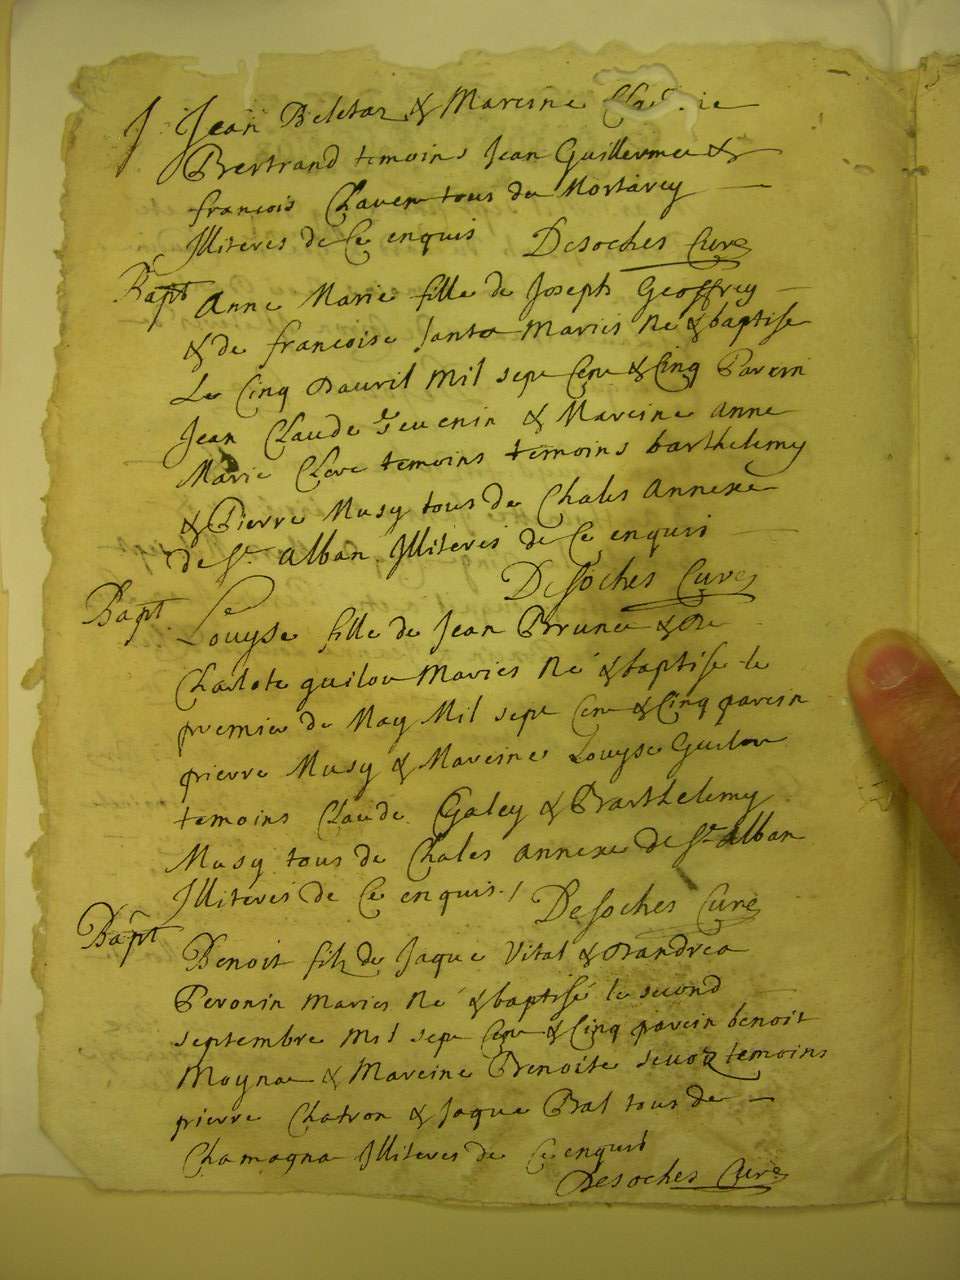 Jean Beletaz & Mareine
Bertrand temoins Jean Guillermet &
francois Chaven tous de Mortarey
Illiteres de Ce enquis Desoches Curé
Bapt
Anne Marie fille de Joseph Geoffrey
& de francoise Mariés Né & baptise
Le Cinq Dauvril Mil sept Cent & Cinq Parein
Jean Claude & Mareine anne
Marie temoins temoins barthelemy
& Pierre Musy tous de Chales Annexe
de St Alban Illiteres de Ce enquis
Desoches Curé
Bapt
Louyse fille de Jean Brunet & De
Charlote guilou Mariés Né & baptise le
premier de May Mil sept Cent & Cinq parein
pierre Musy & Mareine Louyse Guilou
temoins Claude Galey & Barthelemy
Musy tous de Chales annexe de St Alban
Illiteres de Ce enquis / Desoches Curé
Bapt
Benoit filz de Jaque Vital & Dandrea
Peronin Mariés Né & baptisé le second
septembre Mil sept Cent & Cinq parein benoit
Moynat & Mareine Benoite temoins
pierre Chatron & Jaque Bal tous de
Chamagna Illiteres de Ce enquis
Desoches Curé